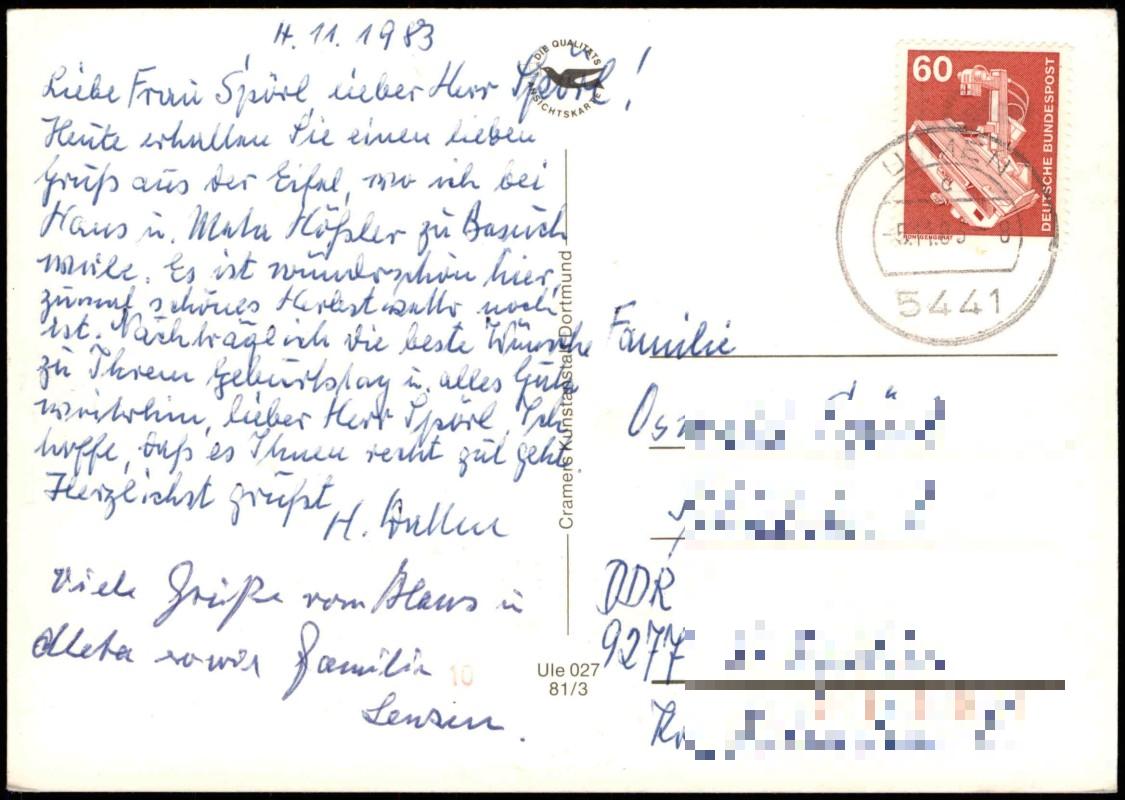 4.11.1983
Liebe Frau Spörl, lieber Herr Spörl!
Heute erhalten Sie einen lieben
Gruß aus der Eifel, wo ich bei
Hans u. Meta Häßler zu Besuch
weile. Es ist wunderschön hier,
zumal schönes Herbstwetter noch
ist. Nachträglich die beste Wünsche
zu Ihrem Geburtstag u. alles Gute
weiterhin, lieber Herr Spörl. Ich
hoffe, daß es Ihnen recht gut geht.
Herzlichst grüßt
H.
Viele Grüße vom Hans u
Meta sowie Familie
Lenzen.
10
DIE QUALITÄTS
ANSICHTSKARTE
Cramers Kunstanstalt Dortmund
Ule 027
81/3
60
DEUTSCHE BUNDESPOST
RÖNTGENGERÄT
ULMEN
a
-5.11.83-8
5441
Familie
DDR
9277